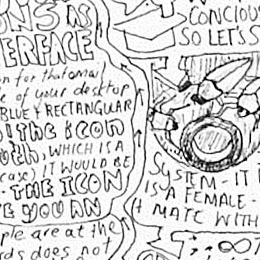 ONS AS
ERFACE
on for that
e of your desktop
BLUE & RECTANGULAR
THE ICON
WHICH IS A
case) IT WOULD BE
THE ICON
E YOU AN
ple are at the
rds does not
CONCIOUS
SO LET'S
SYSTEM - IT
IS A FEMALE -
MATE WITH